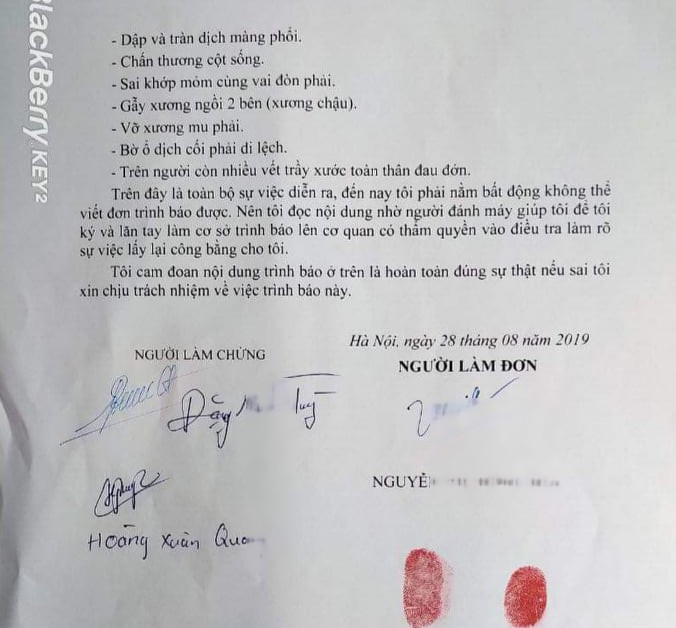 BlackBerry KEY2
- Dập và tràn dịch màng phổi.
- Chấn thương cột sống.
- Sai khớp mỏm cùng vai đòn phải.
- Gẫy xương ngồi 2 bên (xương chậu).
- Vỡ xương mu phải.
- Bờ ổ dịch cối phải di lệch.
- Trên người còn nhiều vết trầy xước toàn thân đau đớn.
Trên đây là toàn bộ sự việc diễn ra, đến nay tôi phải nằm bất động không thể
viết đơn trình báo được. Nên tôi đọc nội dung nhờ người đánh máy giúp tôi để tôi
ký và lăn tay làm cơ sở trình báo lên cơ quan có thẩm quyền vào điều tra làm rõ
sự việc lấy lại công bằng cho tôi.
Tôi cam đoan nội dung trình báo ở trên là hoàn toàn đúng sự thật nếu sai tôi
xin chịu trách nhiệm về việc trình báo này.
Hà Nội, ngày 28 tháng 08 năm 2019
NGƯỜI LÀM CHỨNG
NGƯỜI LÀM ĐƠN
Đặng
NGUYỄ
Hoàng Xuân